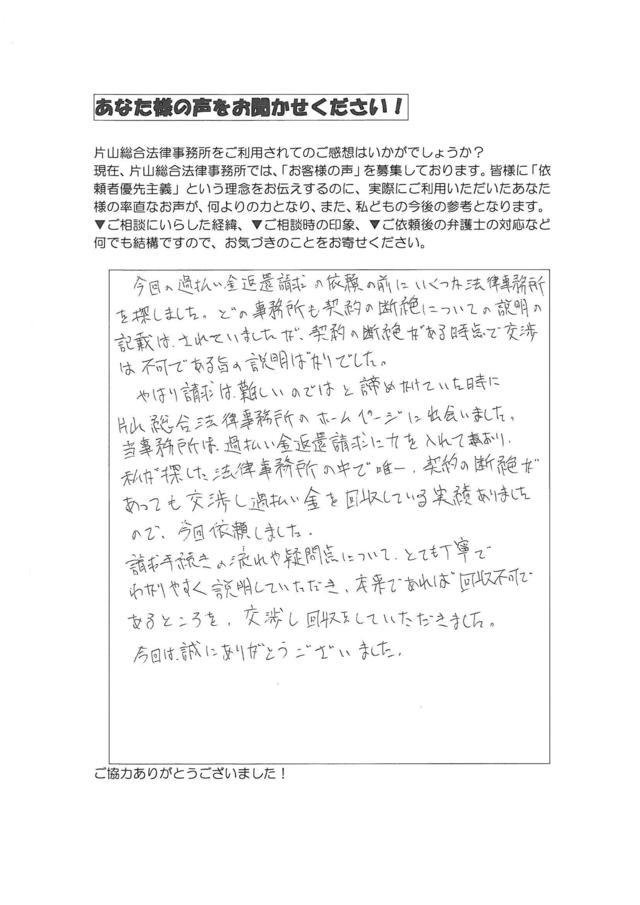 あなた様の声をお聞かせください！
片山総合法律事務所をご利用されてのご感想はいかがでしょうか？
現在、片山総合法律事務所では、「お客様の声」を募集しております。皆様に「依
頼者優先主義」という理念をお伝えするのに、実際にご利用いただいたあなた
様の率直なお声が、何よりの力となり、また、私どもの今後の参考となります。
▼ご相談にいらした経緯、▼ご相談時の印象、▼ご依頼後の弁護士の対応など
何でも結構ですので、お気づきのことをお寄せください。
今回の過払い金返還請求の依頼の前にいくつか法律事務所
を探しました。どの事務所も契約の断絶についての説明の
記載は、されていましたが、契約の断絶がある時点で交渉
は不可である旨の説明ばかりでした。
やはり請求は、難しいのではと諦めかけていた時に
片山総合法律事務所のホームページに出会いました。
当事務所は、過払い金返還請求に力を入れており、
私が探した法律事務所の中で唯一、契約の断絶が
あっても交渉し過払い金を回収している実績ありました
ので、今回依頼しました。
請求手続きの流れや疑問点について、とても丁寧で
わかりやすく説明していただき、本来であれば回収不可で
あるところを、交渉し回収をしていただきました。
今回は、誠にありがとうございました。
ご協力ありがとうございました！